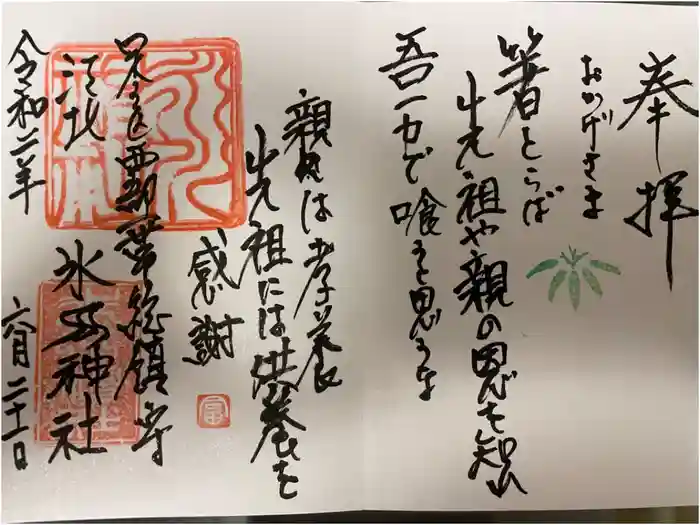 奉拝
おかげさま
箸とらば
先祖や親の恩を知れ
吾一力で喰うと思うな
親には孝養
先祖には供養を
感謝
江北
氷川神社
令和二年
六月二十一日